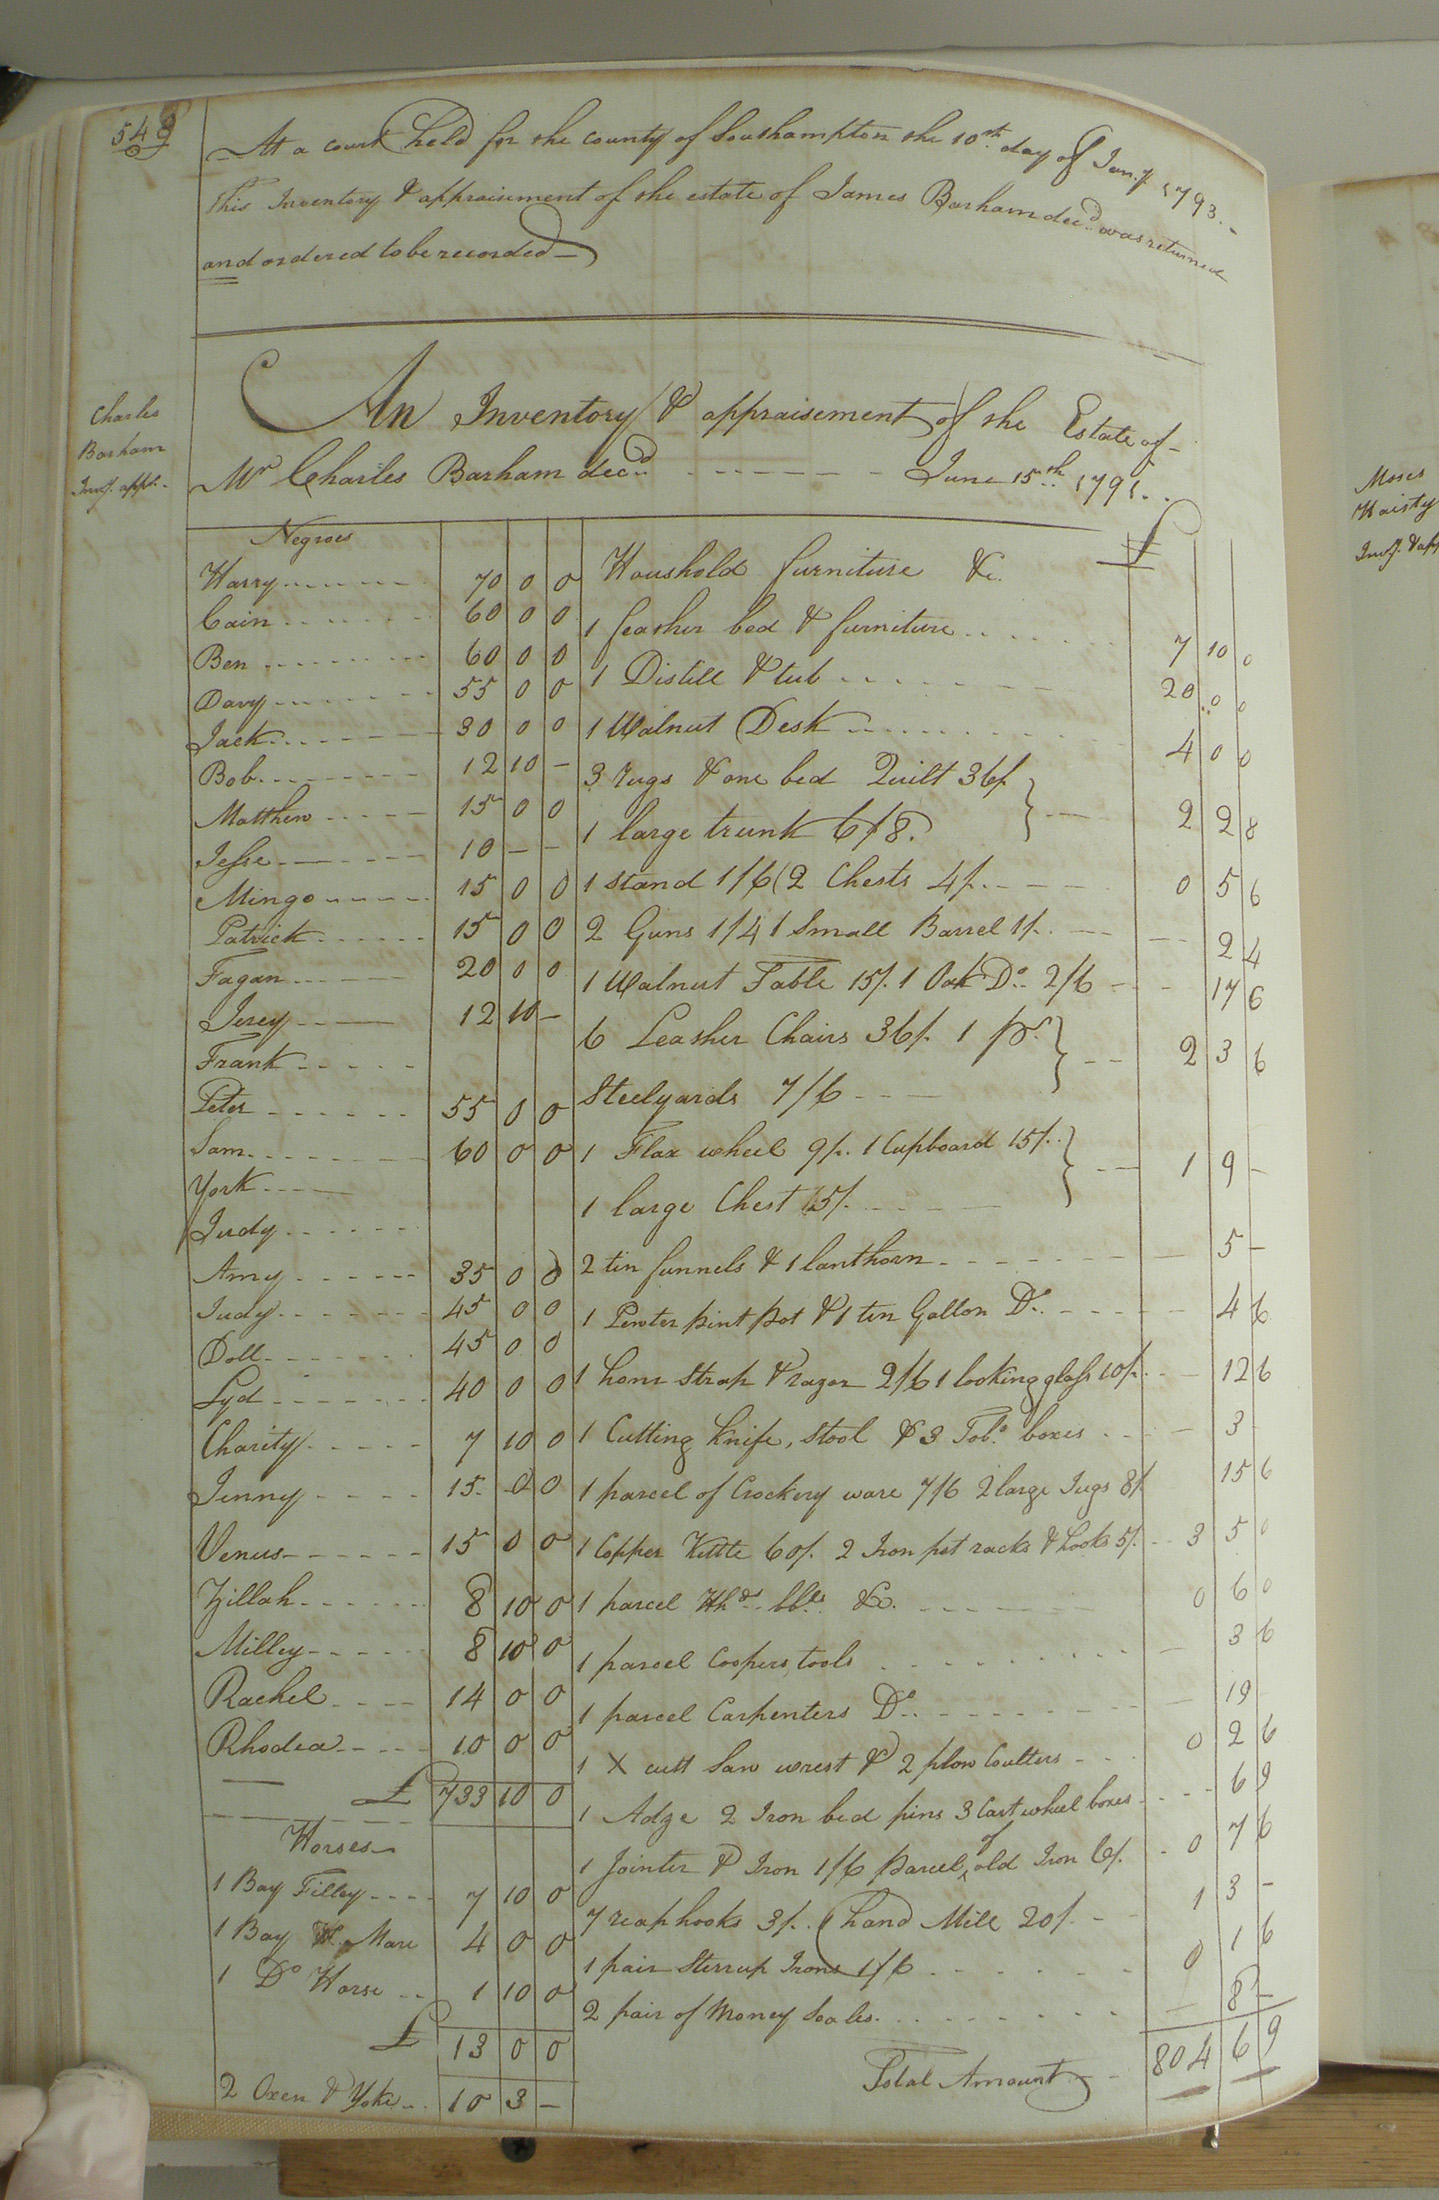 548
At a court held for the county of Southampton the 10th. day of Jany. 1793.
This Inventory & appraisement of the estate of James Barham decd. was returned
and ordered to be recorded
Charles
Barham
Invy. appt.
An Inventory & appraisement of the Estate of
Mr Charles Barham decd. June 15th. 1791.
Negroes
Harry 70 0 0
Cain 60 0 0
Ben 60 0 0
Davy 55 0 0
Jack 30 0 0
Bob 12 10 -
Matthew 15 0 0
Jesse 10 - -
Mingo 15 0 0
Patrick 15 0 0
Fagan 20 0 0
Jerey 12 10 -
Frank
Peter 55 0 0
Sam 60 0 0
York
Judy
Amy 35 0 0
Judy 45 0 0
Doll 45 0 0
Lyd 40 0 0
Charity 7 10 0
Jenny 15 0 0
Venus 15 0 0
Zillah 8 10 0
Milley 8 10 0
Rachel 14 0 0
Rhodea 10 0 0
£ 733 10 0
Horses
1 Bay Filley 7 10 0
1 Bay Mare 4 0 0
1 Do Horse 1 10 0
£ 13 0 0
2 Oxen & Yoke 10 3 -
Houshold furniture &c. £
1 feather bed & furniture 7 10 0
1 Distill & tub 20 0 0
1 Walnut Desk 4 0 0
3 rugs & one bed Quilt 36/.
1 large trunk 6/8. 2 2 8
1 stand 1/6 2 Chests 4/. 0 5 6
2 Guns 1/4 1 Small Barrel 1/. 2 4
1 Walnut Table 15/. 1 Oak Do. 2/6 17 6
6 Leather Chairs 36/. 1 pr.
Steelyards 7/6 2 3 6
1 Flax wheel 9/. 1 Cupboard 15/.
1 large Chest 5/. 1 9 -
2 tin funnels & 1 lanthorn 5 -
1 Pewter pint pot & 1 tin Gallon Do. 4 6
1 hone strap & razor 2/6 1 looking glass 10/. 12 6
1 Cutting knife, stool & 3 Tobo. boxes 3
1 parcel of Crockery ware 7/6 2 large Jugs 8/ 15 6
1 Copper Kettle 60/. 2 Iron pot racks & hooks 5/. 3 5 0
1 parcel Hhds. bbls. &c. 0 6 0
1 parcel Coopers tools 3 6
1 parcel Carpenters Do. 19
1 X cutt Saw wrest & 2 plow Coulters 0 2 6
1 Adze 2 Iron bed pins 3 Cart wheel boxes 6 9
1 Jointer & Iron 1/6 parcel of old Iron 6/. 0 7 6
7 reaphooks 3/. 1 hand Mill 20/. 1 3 -
1 pair Sterrup Irons 1/6 0 1 6
2 pair of Money Scales. 8 -
Total Amount 804 6 9
Moses
Haisty
Invy. & app